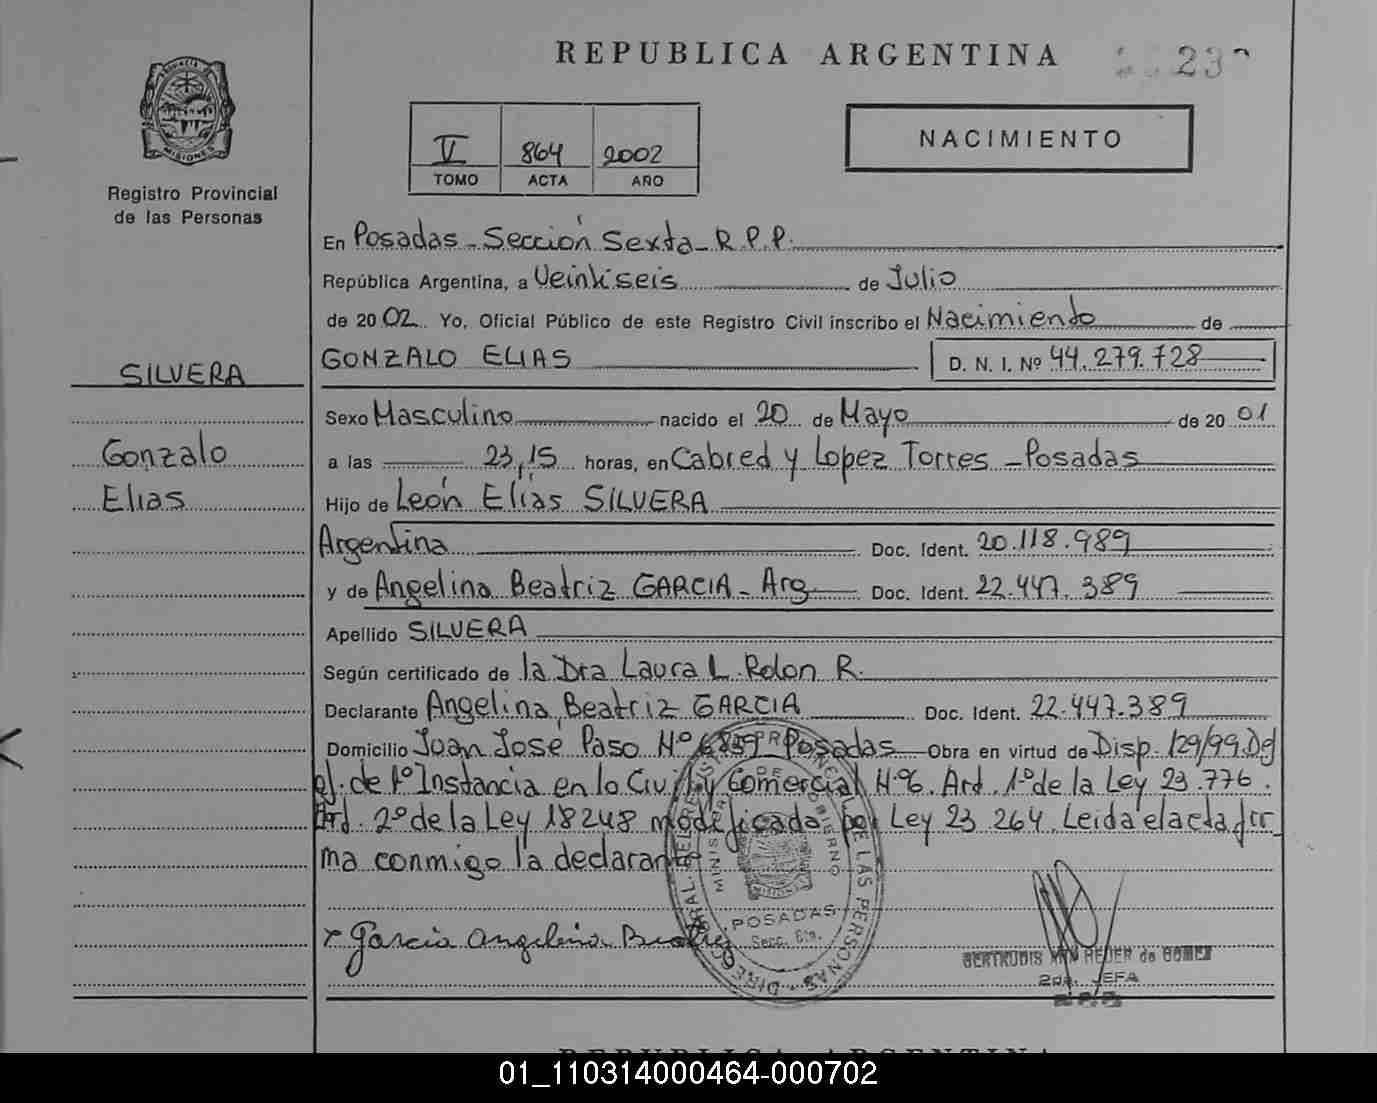 REPUBLICA ARGENTINA
23
PROVINCIA DE
MISIONES
Registro Provincial
de las Personas
V 864 2002
TOMO ACTA AÑO
NACIMIENTO
En Posadas - Sección Sexta - R.P.P.
República Argentina, a Veintiseis de Julio
de 2002. Yo, Oficial Público de este Registro Civil inscribo el Nacimiento de
SILVERA
GONZALO ELIAS D. N. I. Nº 44.279.728
Sexo Masculino nacido el 20 de Mayo de 20 01
Gonzalo
a las 23,15 horas, en Cabred y Lopez Torres - Posadas
Elias
Hijo de León Elías SILVERA
Argentina Doc. Ident. 20.118.989
y de Angelina Beatriz GARCIA - Arg. Doc. Ident. 22.447.389
Apellido SILVERA
Según certificado de la Dra Laura L. Rolon R.
Declarante Angelina Beatriz GARCIA Doc. Ident. 22.447.389
Domicilio Juan José Paso Nº 6859 Posadas Obra en virtud de Disp. 129/99. Del
de 1º Instancia en lo Civil y Comercial Nº6. Ard. 1º de la Ley 23.776.
Ard. 2º de la Ley 18248 modificada por Ley 23 264. Leida el acta fir_
ma conmigo la declarante
x Garcia Angelina Beatriz
DIREC. GRAL. DEL REGISTRO PROVINCIAL DE LAS PERSONAS
MINISTERIO DE GOBIERNO
POSADAS
Secc. 6ta.
GERTRUDIS de GOMEZ
2da. JEFA
R.P.P.
REPUBLICA ARGENTINA
01_110314000464-000702